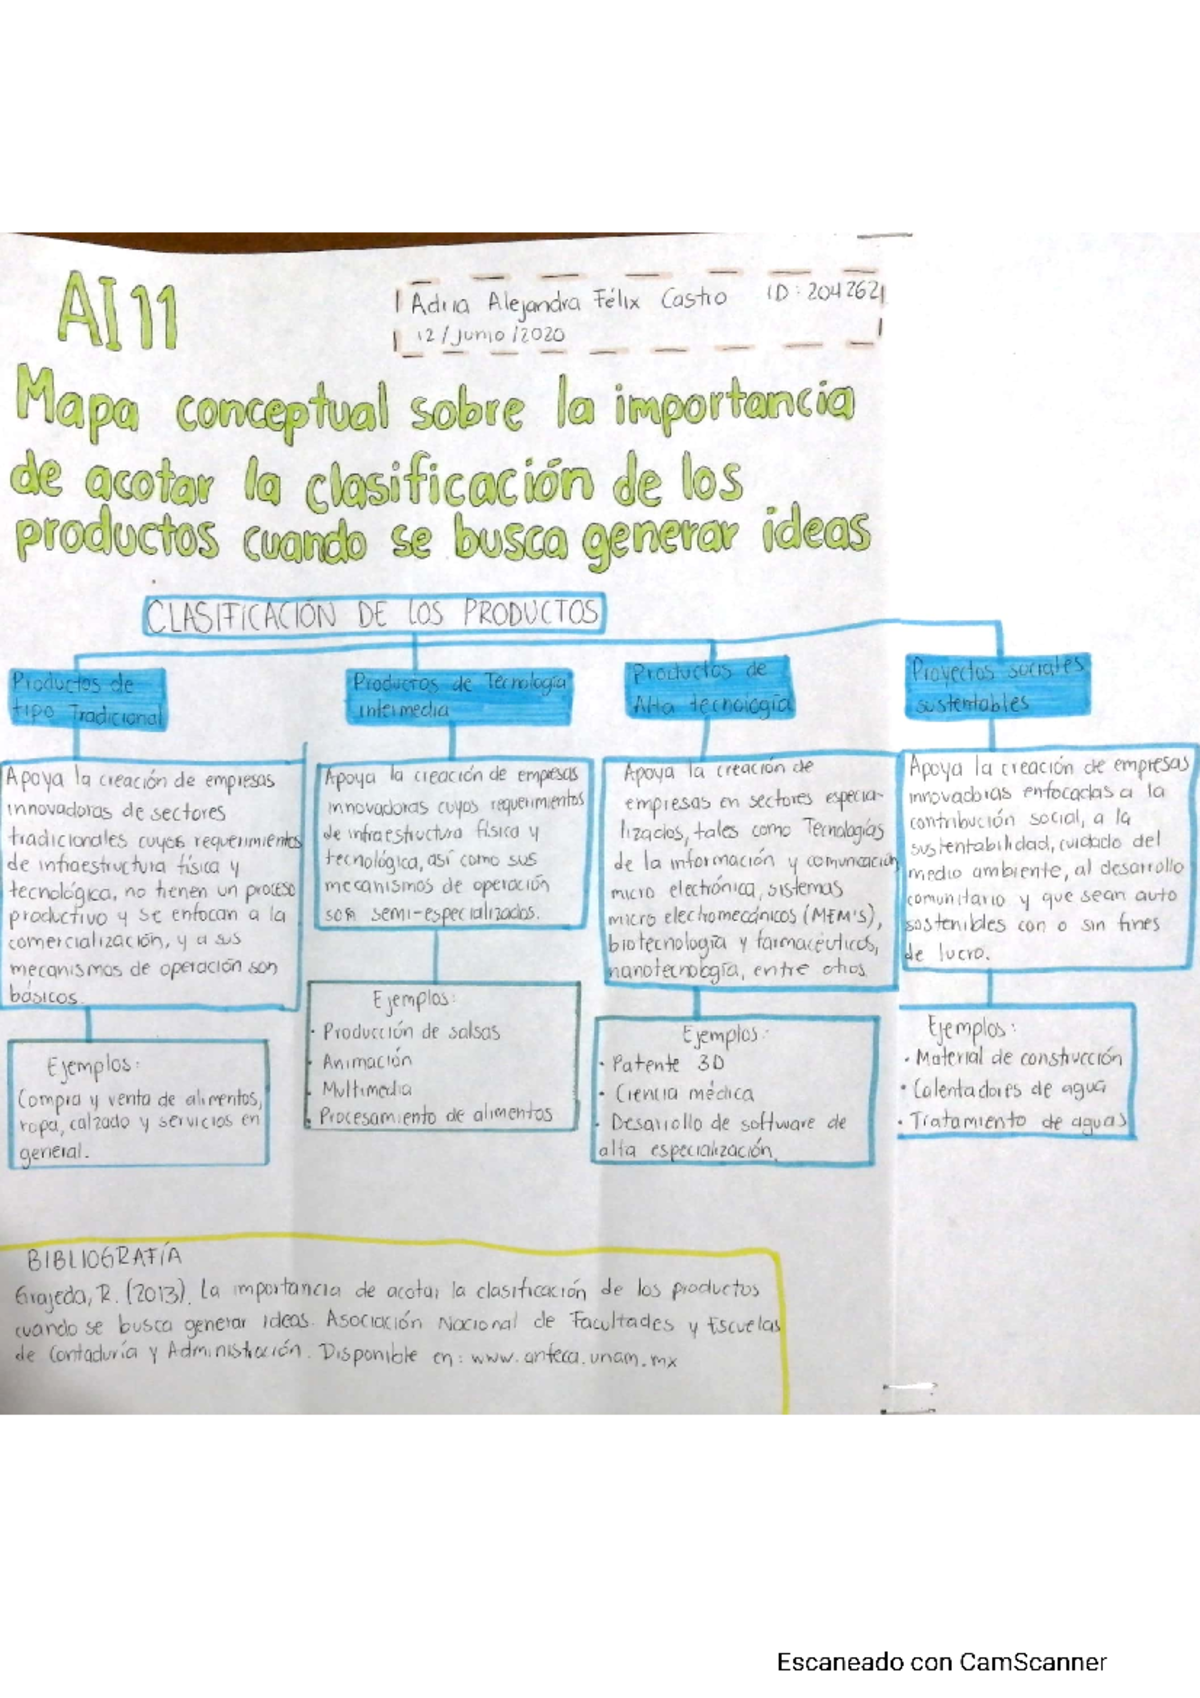 AI 11
Adria Alejandra Félix Castro ID: 204262
12/Junio/2020
Mapa conceptual sobre la importancia
de acotar la clasificación de los
productos cuando se busca generar ideas
CLASIFICACIÓN DE LOS PRODUCTOS
Productos de
tipo Tradicional
Apoya la creación de empresas
innovadoras de sectores
tradicionales cuyos requerimientos
de infraestructura física y
tecnológica, no tienen un proceso
productivo y se enfocan a la
comercialización, y a sus
mecanismos de operación son
básicos.
Ejemplos:
Compra y venta de alimentos,
ropa, calzado y servicios en
general.
Productos de Tecnología
intermedia
Apoya la creación de empresas
innovadoras cuyos requerimientos
de infraestructura física y
tecnológica, así como sus
mecanismos de operación
son semi-especializados.
Ejemplos:
· Producción de salsas
· Animación
· Multimedia
· Procesamiento de alimentos
Productos de
Alta tecnología
Apoya la creación de
empresas en sectores especia-
lizados, tales como Tecnologías
de la información y comunicación,
micro electrónica, sistemas
micro electromecánicos (MEM's),
biotecnología y farmacéuticos,
nanotecnología, entre otros
Ejemplos:
· Patente 3D
· Ciencia médica
· Desarrollo de software de
alta especialización.
Proyectos sociales
sustentables
Apoya la creación de empresas
innovadoras enfocadas a la
contribución social, a la
sustentabilidad, cuidado del
medio ambiente, al desarrollo
comunitario y que sean auto
sostenibles con o sin fines
de lucro.
Ejemplos:
· Material de construcción
· Calentadores de agua
· Tratamiento de aguas
BIBLIOGRAFÍA
Grajeda, R. (2013). La importancia de acotar la clasificación de los productos
cuando se busca generar ideas. Asociación Nacional de Facultades y Escuelas
de Contaduría y Administración. Disponible en: www.anfeca.unam.mx
Escaneado con CamScanner